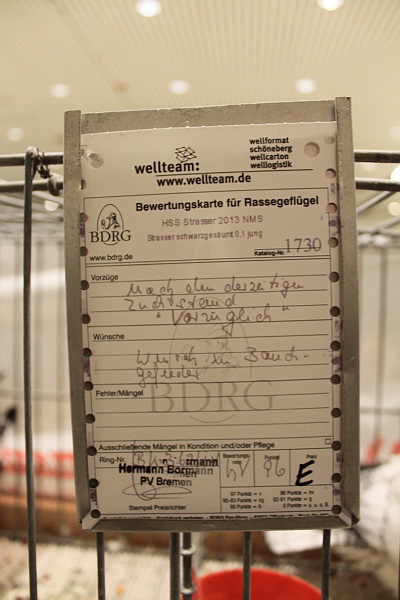 wellteam:
wellformat
schöneberg
wellcarton
welllogistik
www.wellteam.de
Bewertungskarte für Rassegeflügel
HSS Strasser 2013 NMS
Strasser schwarzgesäumt 0,1 jung
BDRG
www.bdrg.de
Katalog-Nr. 1730
Vorzüge
Nach dem derzeitigen
Zuchtstand
"Vorzüglich"
Wünsche
Wunsch in Bauch-
gefieder
BDRG
Fehler/Mängel
Ausschließende Mängel in Kondition und/oder Pflege
Ring-Nr.
Bewertung
Punkte
Preis
hv 96 E
Hermann Bormann
PV Bremen
97 Punkte = v
96 Punkte = hv
Stempel Preisrichter